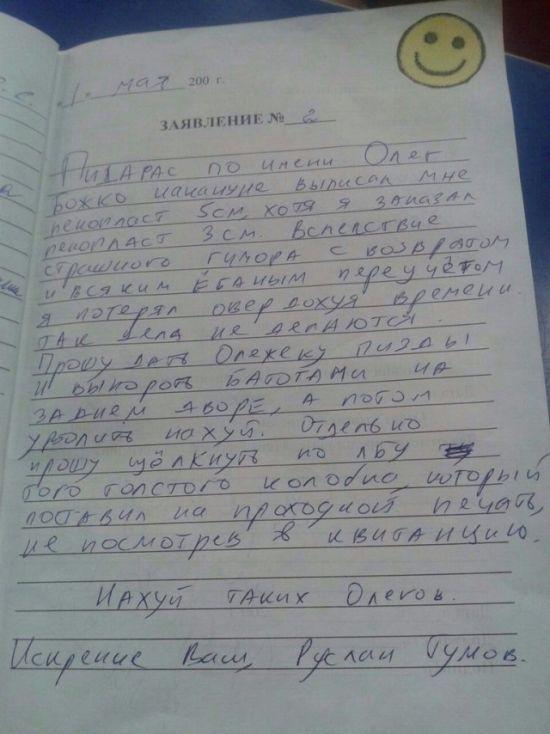 1. мая 200 г.
ЗАЯВЛЕНИЕ № 2
Пидарас по имени Олег
Божко накануне выписал мне
пенопласт 5см, хотя я заказал
пенопласт 3см. Вследствие
страшного гумора с возвратом
и всяким ёбаным переучётом
я потерял овердохуя времени.
так дела не делаются.
Прошу дать Олежеку пизды
и выпороть батогами на
заднем дворе, а потом
уволить нахуй. Отдельно
прошу щёлкнуть по лбу
того толстого колобка, который
поставил на проходной печать,
не посмотрев в квитанцию.
Нахуй таких Олегов.
Искрение Ваш, Руслан Гумов.